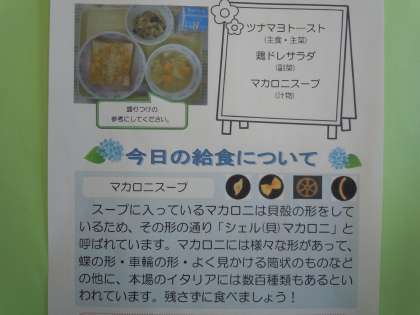 ツナマヨトースト
(主食・主菜)
鶏ドレサラダ
(副菜)
マカロニスープ
(汁物)
盛りつけの
参考にしてください。
今日の給食について
マカロニスープ
スープに入っているマカロニは貝殻の形をして
いるため、その形の通り「シェル(貝)マカロニ」と
呼ばれています。マカロニには様々な形があって、
蝶の形・車輪の形・よく見かける筒状のものなど
の他に、本場のイタリアには数百種類もあるとい
われています。残さずに食べましょう！